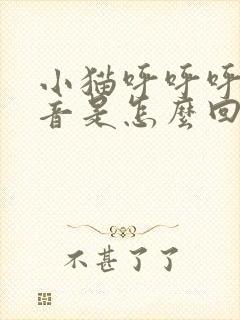 小猫呼呼呼
音是怎麼回
不甚了了